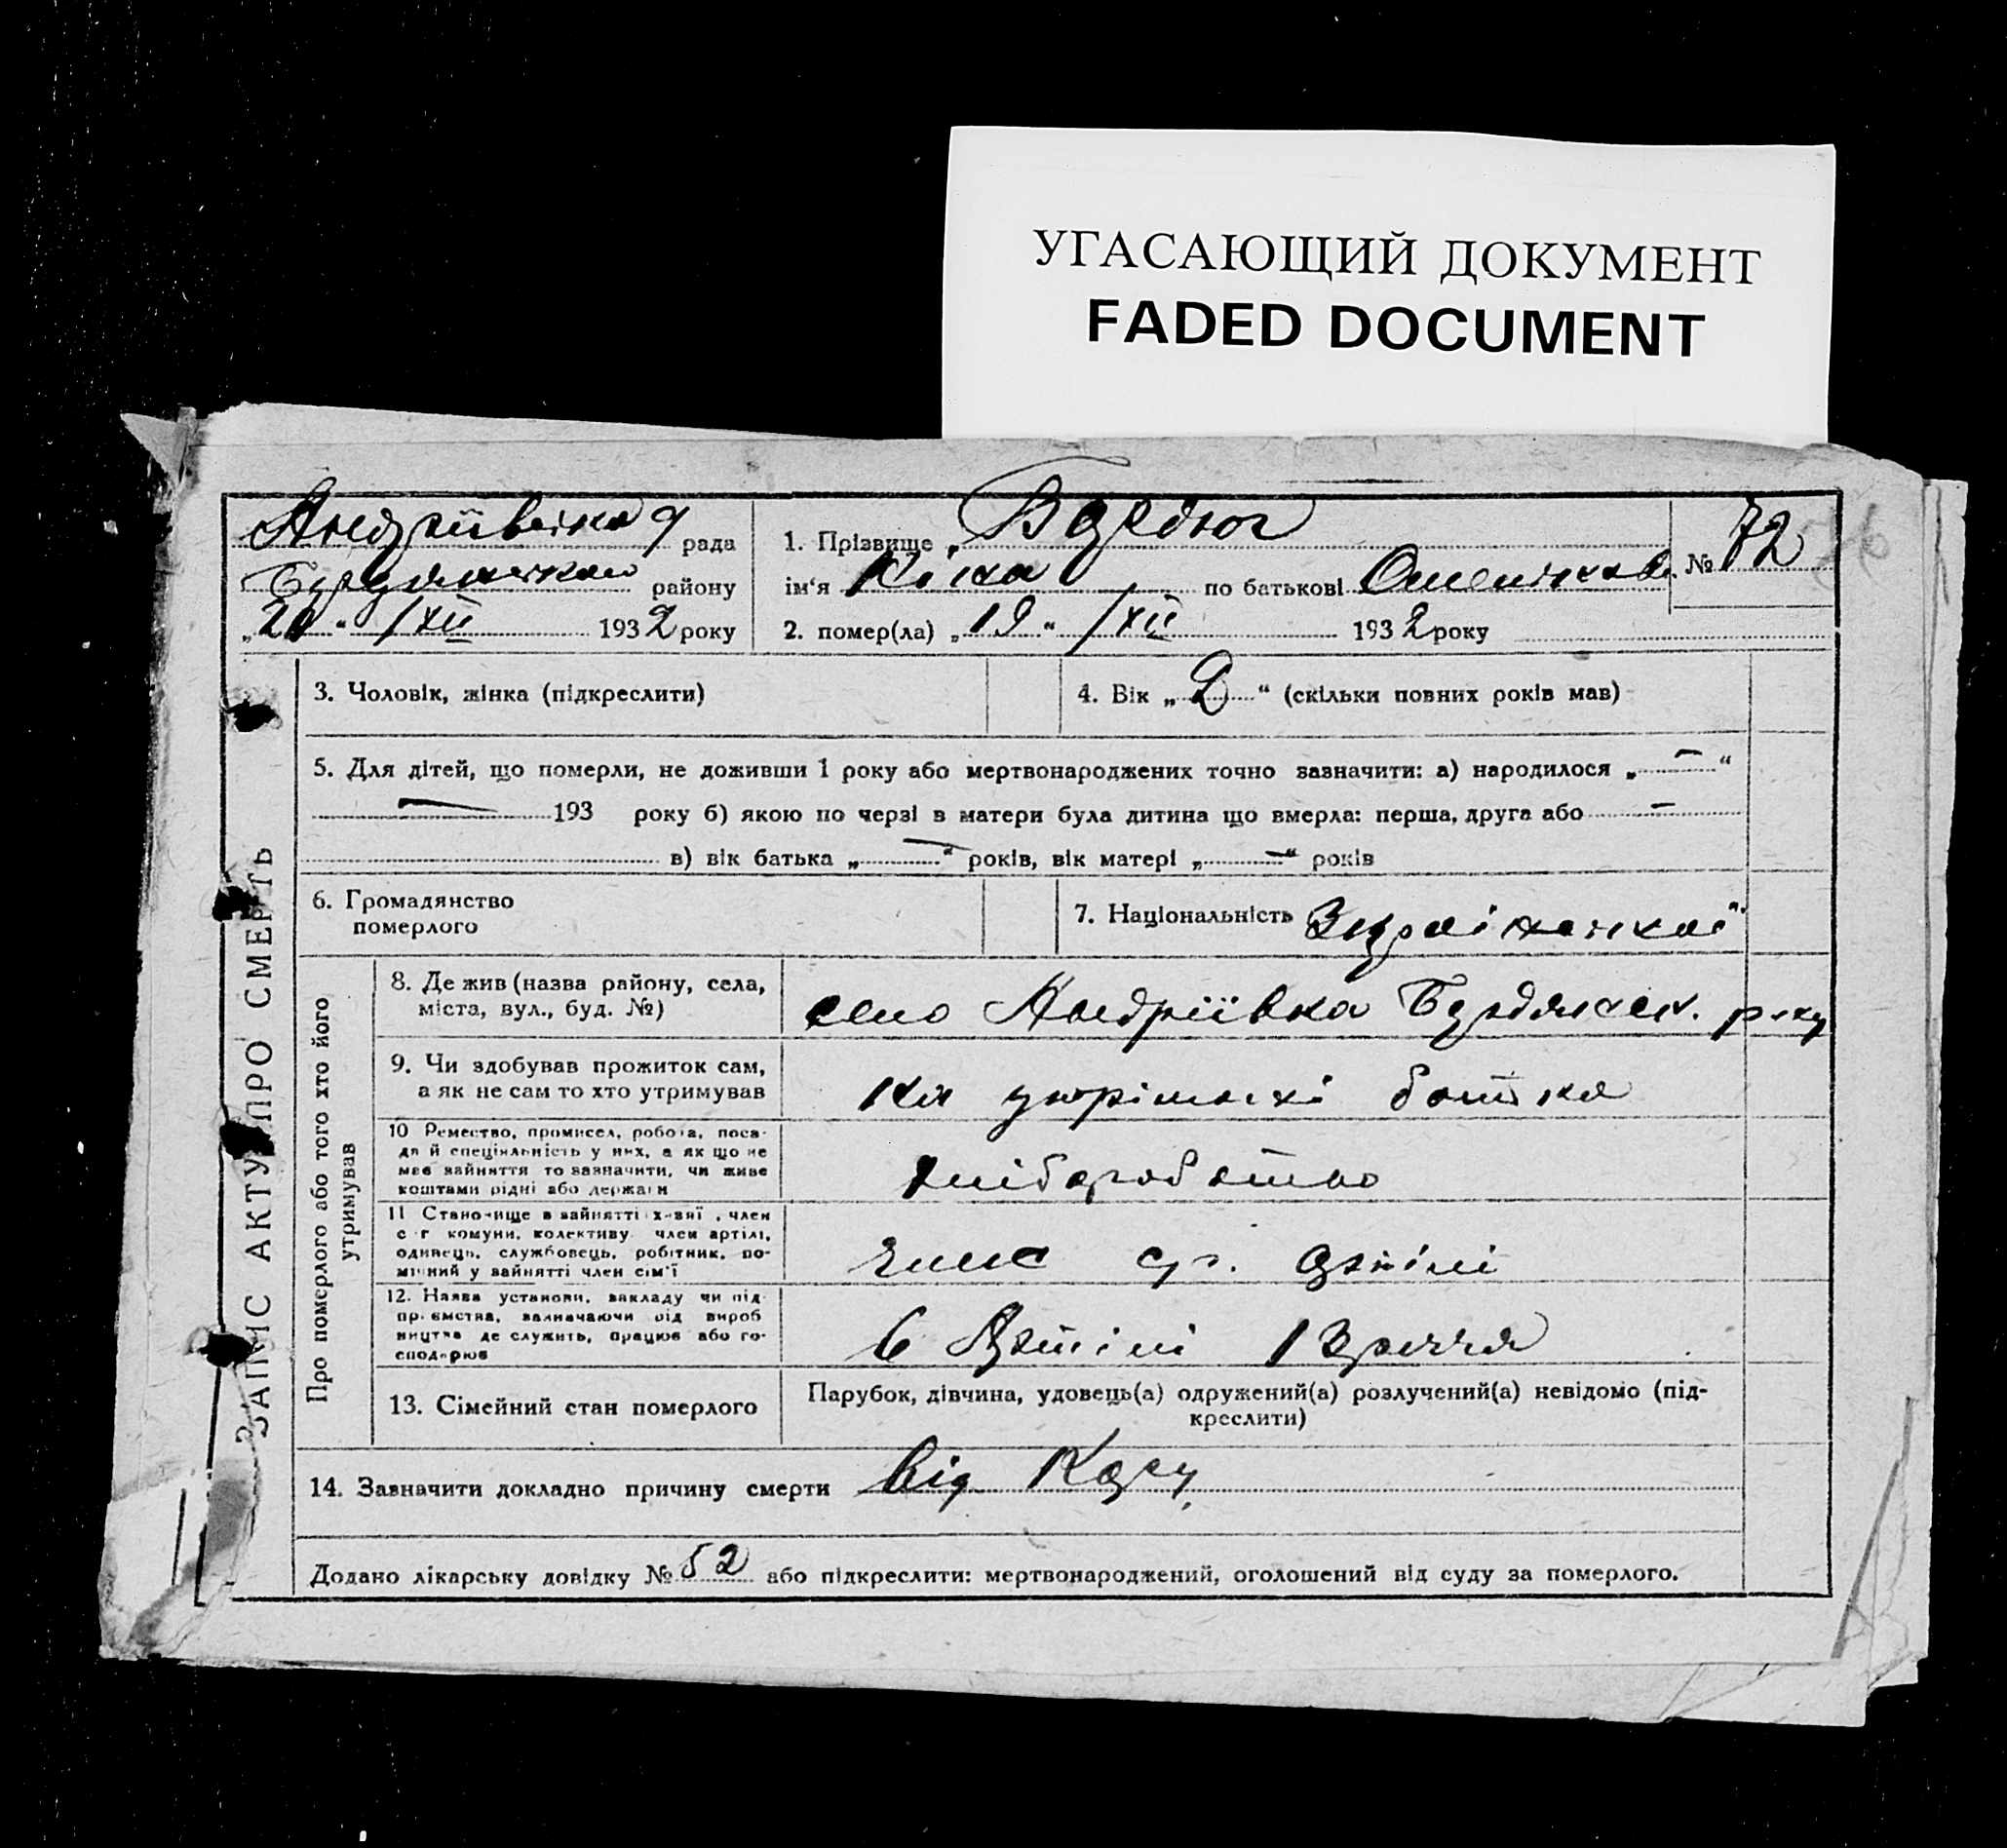 УГАСАЮЩИЙ ДОКУМЕНТ
FADED DOCUMENT
ЗАПИС АКТУ ПРО СМЕРТЬ
Андріївська рада
району
„20“ /XII 1932 року
1. Прізвище
ім‘я по батькові
№ 72
2. помер(ла) „19“ /XII 1932 року
3. Чоловік, жінка (підкреслити)
4. Вік „2“ (скільки повних років мав)
5. Для дітей, що померли, не доживши 1 року або мертвонароджених точно зазначити: а) народилося „—“
— 193 року б) якою по черзі в матери була дитина що вмерла: перша, друга або —
в) вік батька „—“ років, вік матері „—“ років
6. Громадянство
померлого
7. Національність
Про померлого або того хто його
утримував
8. Де жив (назва району, села,
міста, вул., буд. №)
село Андріївка Бердянськ. р-ну
9. Чи здобував прожиток сам,
а як не сам то хто утримував
на батька
10 Ремество, промисел, робота, поса-
да й спеціяльність у них, а як що не
має зайняття то зазначити, чи живе
коштами рідні або держави
хліборобство
11 Становище в зайнятті: х-зяї , член
с-г комуни, колективу член артілі,
одинець, службовець, робітник, по-
мічний у зайнятті член сім'ї
член сг. артілі
12. Назва установи, закладу чи під-
приємства, зазначаючи рід вироб
ництва де служить, працює або го-
сподарює
в Артілі
13. Сімейний стан померлого
Парубок, дівчина, удовець(а) одружений(а) розлучений(а) невідомо (під-
креслити)
14. Зазначити докладно причину смерти від Кору
Додано лікарську довідку № 52 або підкреслити: мертвонароджений, оголошений від суду за померлого.